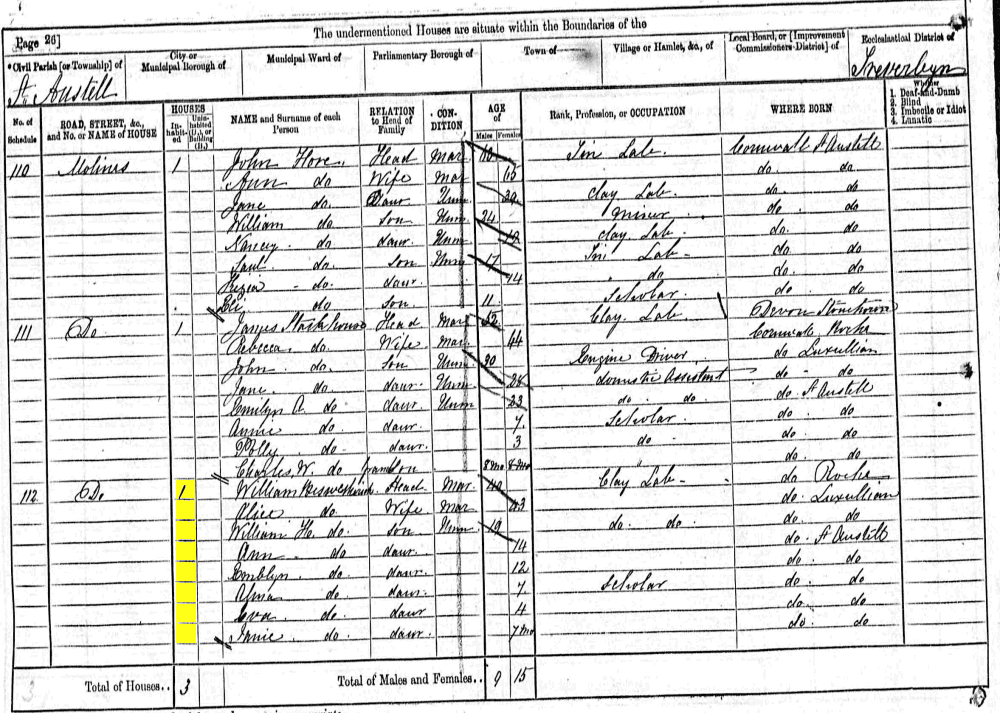 The undermentioned Houses are situate within the Boundaries of the
Page 26]
Civil Parish [or Township] of St. Austell
City or Municipal Borough of
Municipal Ward of
Parliamentary Borough of
Town of
Village or Hamlet, &c., of
Local Board, or [Improvement Commissioners District] of
Ecclesiastical District of Treverbyn
No. of Schedule
ROAD, STREET, &c., and No. or NAME of HOUSE
HOUSES
In-habit-ed
Unin-habited (U.), or Building (B.)
NAME and Surname of each Person
RELATION to Head of Family
CON-DITION
AGE of
Males
Females
Rank, Profession, or OCCUPATION
WHERE BORN
Whether
1. Deaf-and-Dumb
2. Blind
3. Imbecile or Idiot
4. Lunatic
110 Molinis 1 John Hore Head Mar Tin Lab. Cornwall St Austell
Ann do Wife Mar do. do.
Jane do. Daur Unm Clay Lab. do. do
William do son Unm 24 Miner do. do
Nancy do daur. Unm 19 Clay Lab. do. do
Saul do. Son Unm 17 Tin Lab. do. do
do. daur. 14 do do. do
Eli do son 11 Scholar do. do
111 Do 1 James Stackhouse Head Mar 52 Clay Lab. Devon
Rebecca do. Wife Mar 44 Cornwall Roche
John do. Son Unm 20 Engine Driver do Luxullian
Jane do daur. Unm domestic Assistant do do
Emilyn A. do daur. Unm 23 do. do. do. St Austell
Annie do daur. 7 Scholar do. do
Polly do. daur. 3 do do. do
Charles W. do grandson 8 mo do. do
112 Do 1 William Head Mar 40 Clay Lab do Roche
Alice do Wife Mar 43 do. Luxullian
William H. do. son Unm 19 do. do. do. do
Ann do daur. 14 do. St Austell
Emblyn do. daur. 12 do. do
do. daur. 7 Scholar do. do
Eva do. daur 4 do. do
Janie do. daur. 7 mo do. do
Total of Houses.. 3
Total of Males and Females.. 9 15